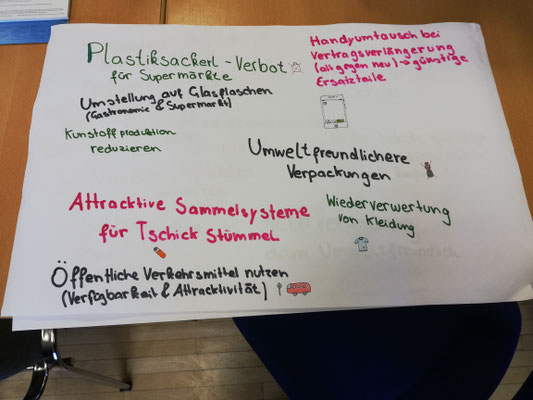 Plastiksackerl - Verbot
für Supermärkte
Handyumtausch bei
Vertragsverlängerung
(alt gegen neu) → günstige
Ersatzteile
Umstellung auf Glasflaschen
(Gastronomie & Supermarkt)
Kunstoffproduktion
reduzieren
Umweltfreundlichere
Verpackungen
Attracktive Sammelsysteme
für Tschick Stümmel
Wiederverwertung
von Kleidung
Öffentliche Verkehrsmittel nutzen
(Verfügbarkeit & Attracktivität)